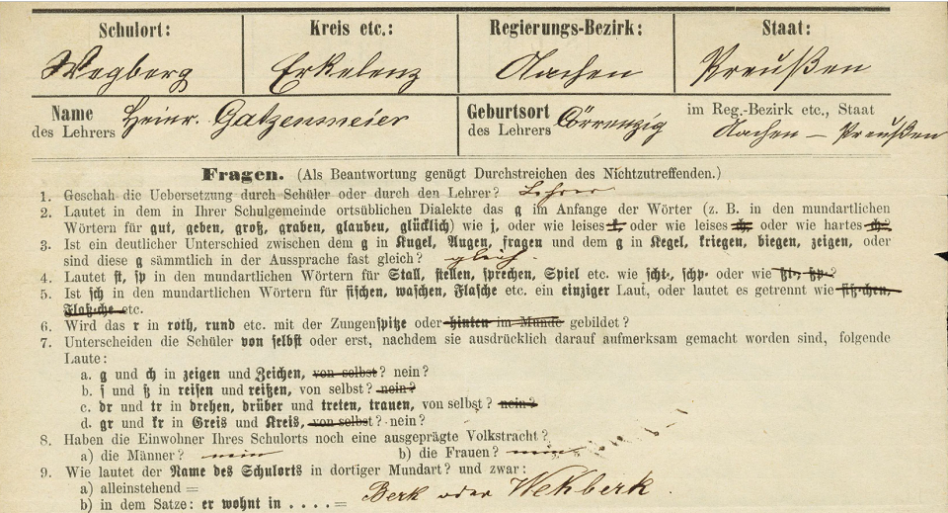 Schulort: Kreis etc.: Regierungs-Bezirk: Staat:
Wegberg Erkelenz Aachen Preußen
Name Heinr. Gatzensmeier Geburtsort Cörrenzig im Reg.-Bezirk etc., Staat
des Lehrers des Lehrers Aachen – Preußen
Fragen. (Als Beantwortung genügt Durchstreichen des Nichtzutreffenden.)
1. Geschah die Uebersetzung durch Schüler oder durch den Lehrer? Lehrer
2. Lautet in dem in Ihrer Schulgemeinde ortsüblichen Dialekte das g im Anfange der Wörter (z. B. in den mundartlichen
Wörtern für gut, geben, groß, graben, glauben, glücklich) wie j, oder wie leises k, oder wie leises ch, oder wie hartes ch?
3. Ist ein deutlicher Unterschied zwischen dem g in Kugel, Augen, fragen und dem g in Kegel, kriegen, biegen, zeigen, oder
sind diese g sämmtlich in der Aussprache fast gleich? gleich.
4. Lautet st, sp in den mundartlichen Wörtern für Stall, stellen, sprechen, Spiel etc. wie scht-, schp- oder wie ßt-, ßp-?
5. Ist sch in den mundartlichen Wörtern für fischen, waschen, Flasche etc. ein einziger Laut, oder lautet es getrennt wie fiß-chen,
Flaß-che etc.
6. Wird das r in roth, rund etc. mit der Zungenspitze oder hinten im Munde gebildet?
7. Unterscheiden die Schüler von selbst oder erst, nachdem sie ausdrücklich darauf aufmerksam gemacht worden sind, folgende
Laute:
a. g und ch in zeigen und Zeichen, von selbst? nein?
b. s und ß in reisen und reißen, von selbst? nein?
c. dr und tr in drehen, drüber und treten, trauen, von selbst? nein?
d. gr und kr in Greis und Kreis, von selbst? nein?
8. Haben die Einwohner Ihres Schulorts noch eine ausgeprägte Volkstracht?
a) die Männer? nein b) die Frauen? nein
9. Wie lautet der Name des Schulorts in dortiger Mundart? und zwar:
a) alleinstehend = Berk oder Wekberk.
b) in dem Satze: er wohnt in . . . . =